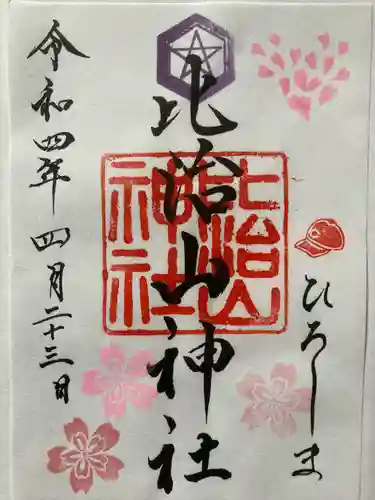 ひろしま
比治山神社
比治山
神社
令和四年 四月二十三日